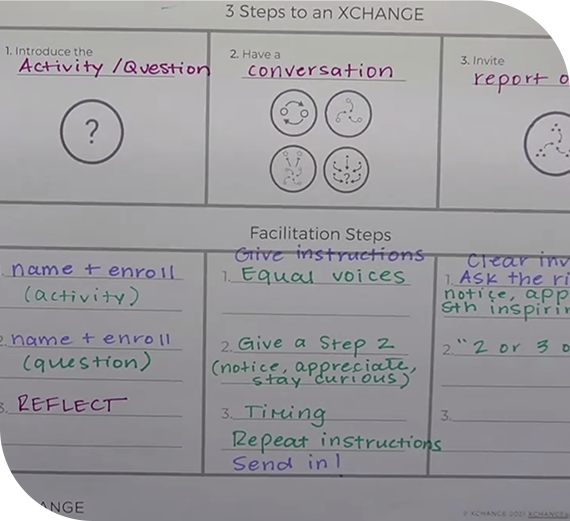 3 Steps to an XCHANGE
1. Introduce the
Activity / Question
?
2. Have a
conversation
?
3. Invite
report
Facilitation Steps
name + enroll
(activity)
name + enroll
(question)
3. REFLECT
Give instructions
1. Equal voices
2. Give a Step 2
(notice, appreciate,
stay curious)
3. Timing
Repeat instructions
Send in 1
Clear
1. Ask the
notice,
Sth
2. "2 or 3
3.
ANGE
© XCHANGE 2021